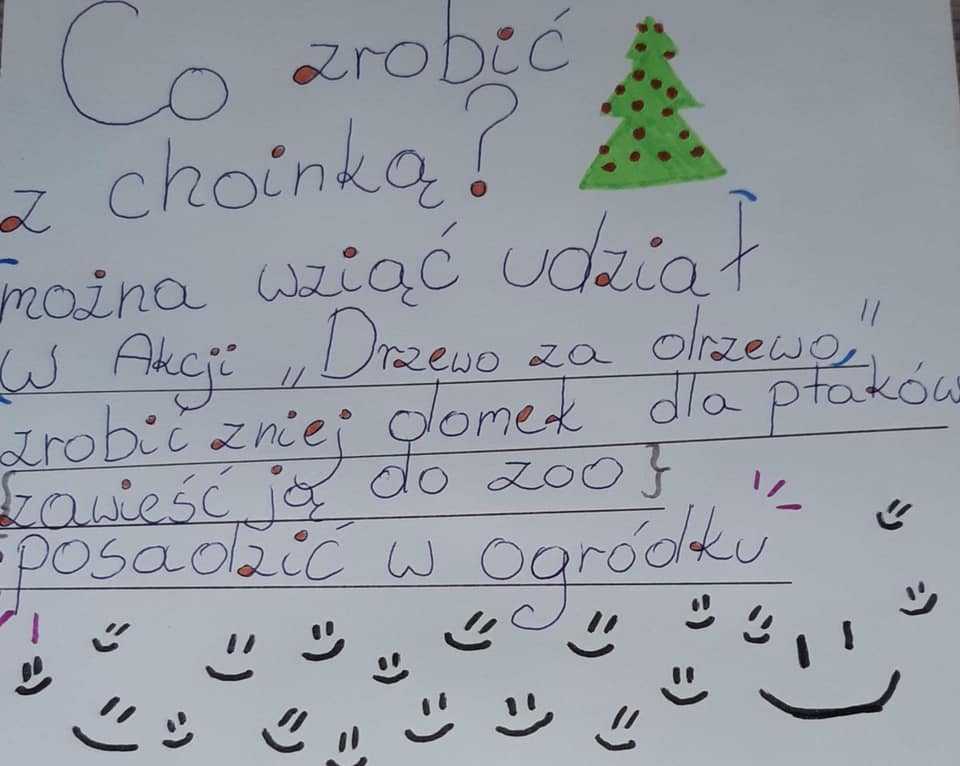 Co zrobić
z choinką?
można wziąć udział
w Akcji „Drzewo za drzewo”,
zrobić z niej domek dla ptaków
{zawieść ją do zoo}
posadzić w ogródku